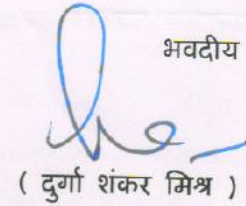 भवदीय
( दुर्गा शंकर मिश्र )